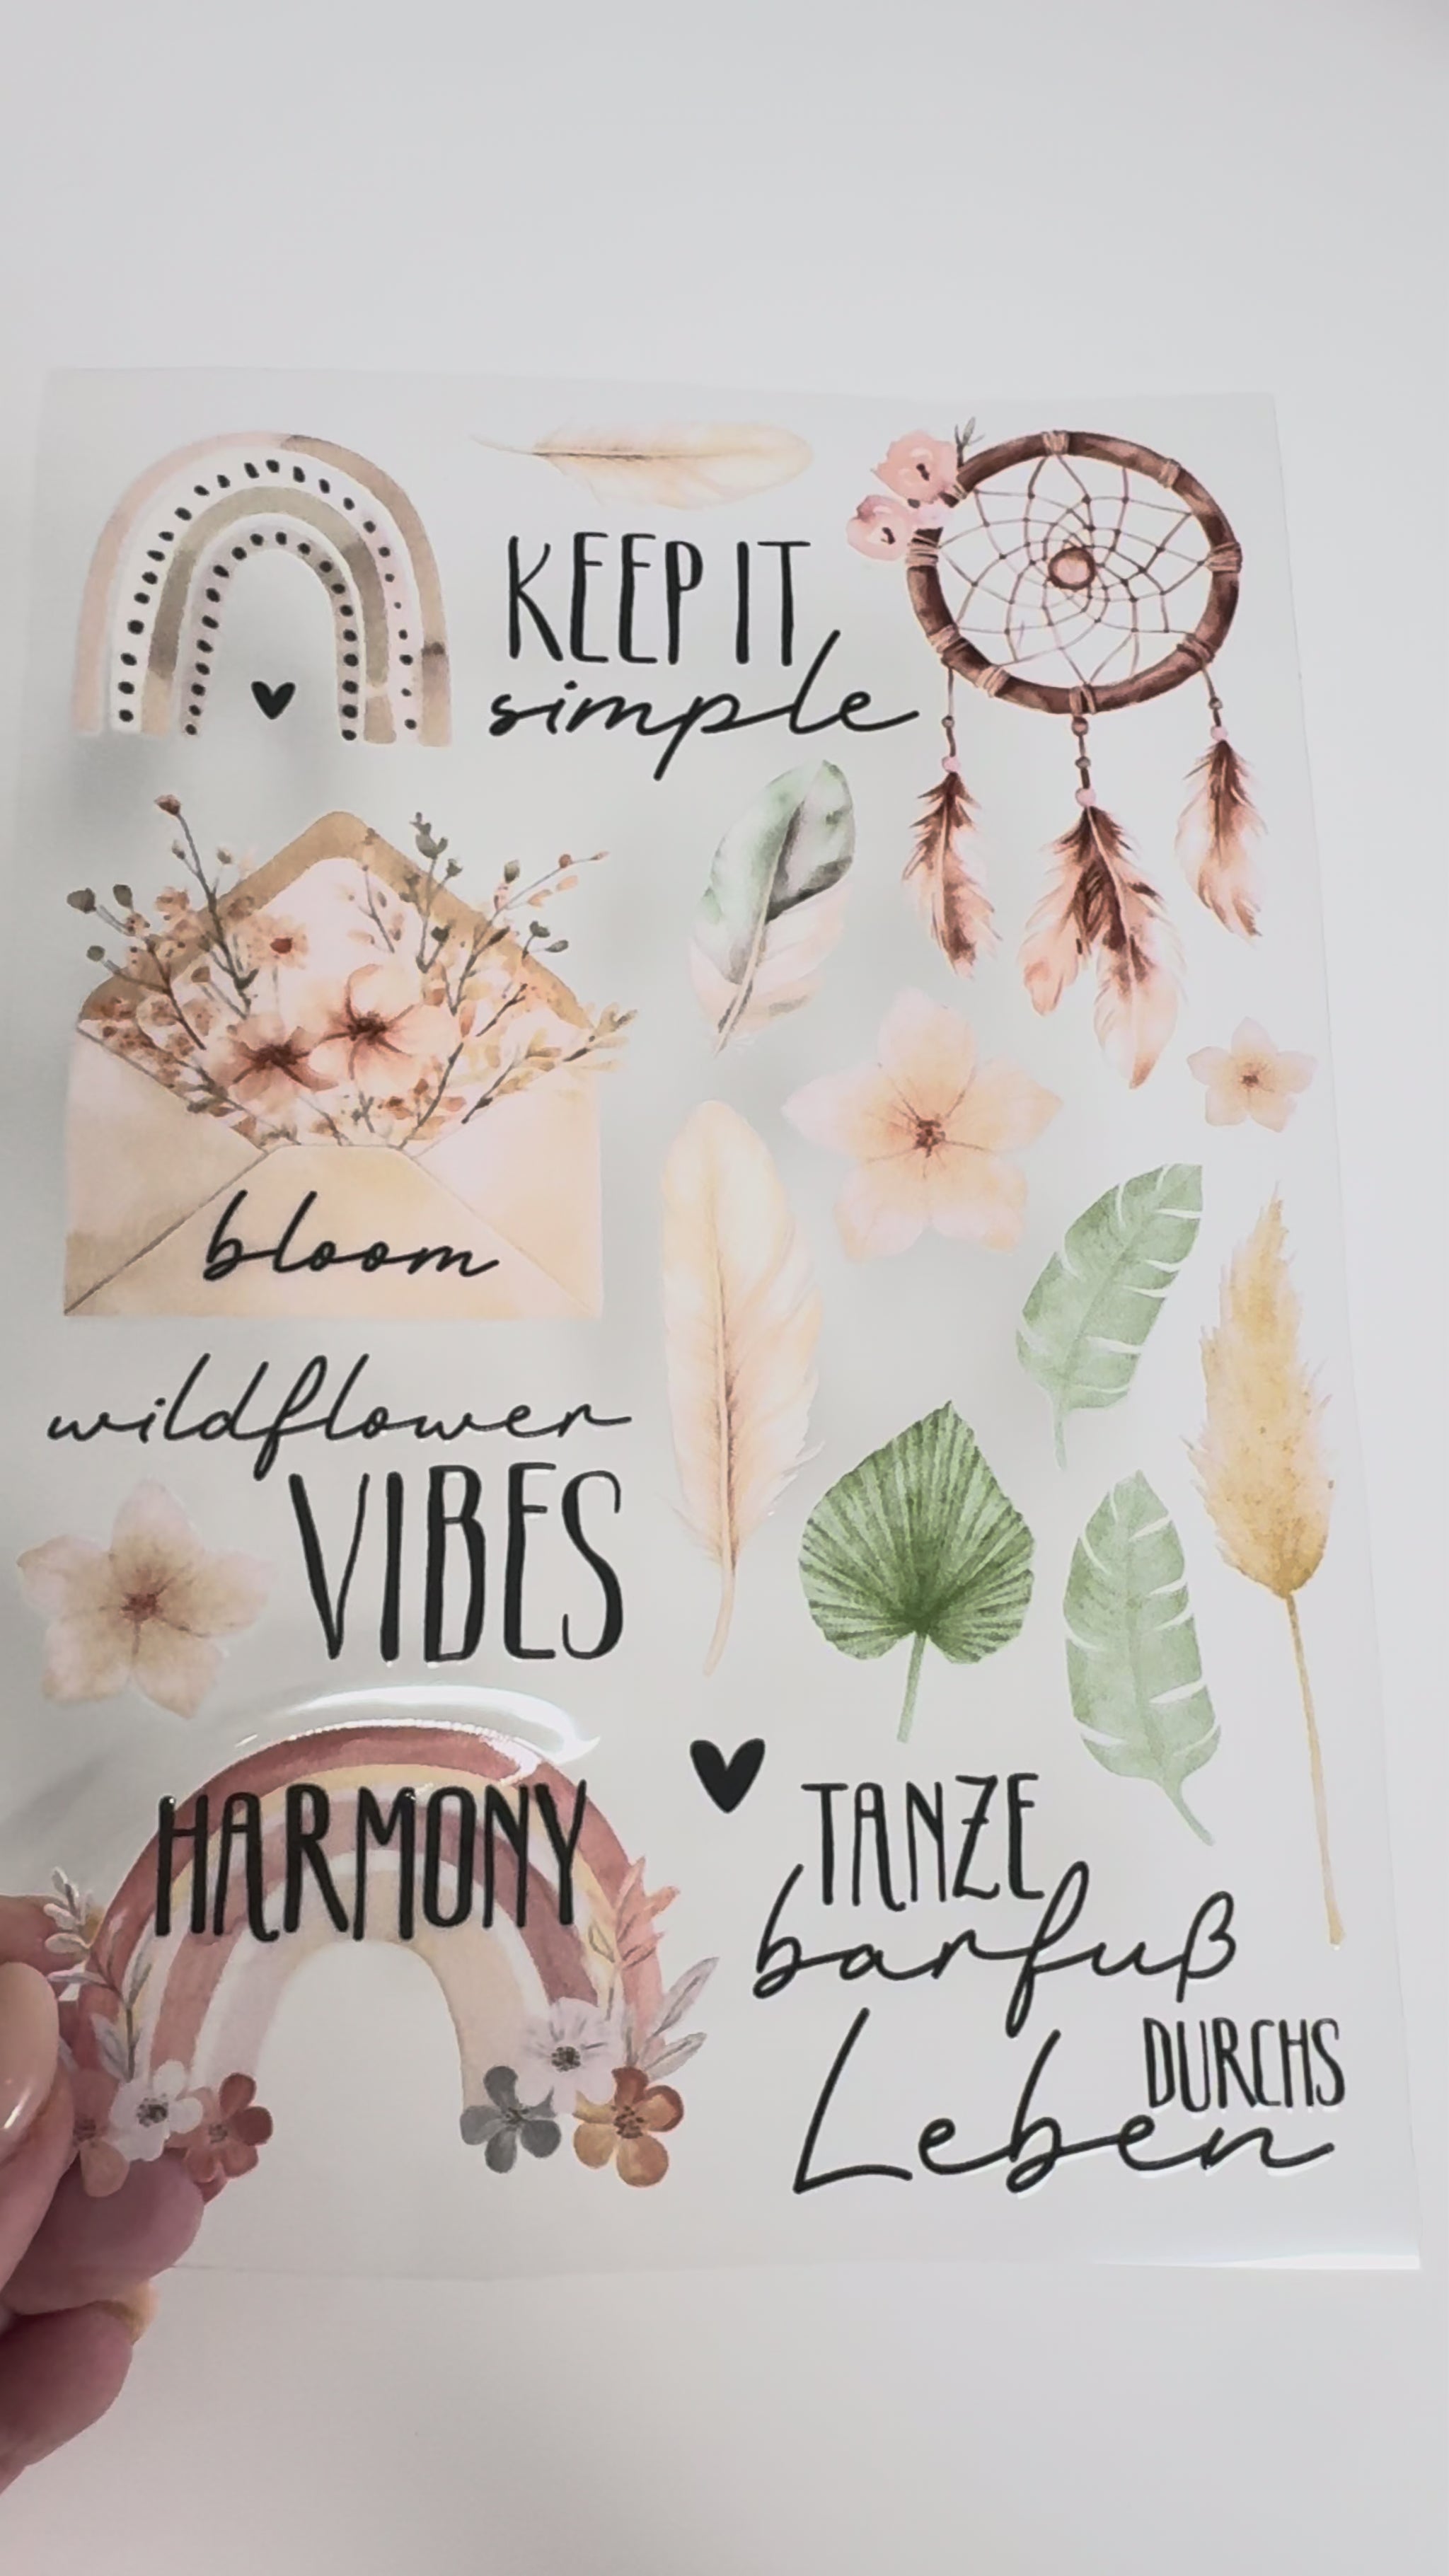 KEEP IT
simple
bloom
wildflower
VIBES
HARMONY
TANZE
barfuß
DURCHS
Leben